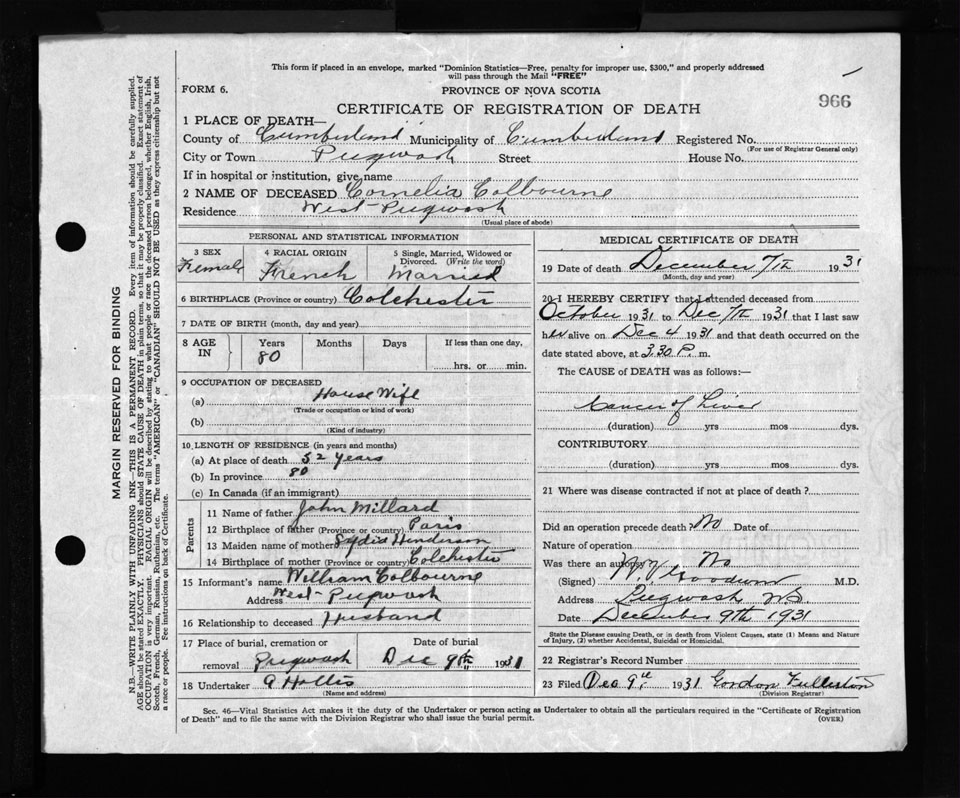 This form if placed in an envelope, marked "Dominion Statistics—Free, penalty for improper use, $300," and properly addressed
will pass through the Mail "FREE"
FORM 6.
PROVINCE OF NOVA SCOTIA
966
CERTIFICATE OF REGISTRATION OF DEATH
1 PLACE OF DEATH—
County of Cumberland Municipality of Cumberland Registered No.
(For use of Registrar General only)
City or Town Pugwash Street House No.
If in hospital or institution, give name
2 NAME OF DECEASED Cornelia Colbourne
Residence West-Pugwash
(Usual place of abode)
PERSONAL AND STATISTICAL INFORMATION
3 SEX
Female
4 RACIAL ORIGIN
French
5 Single, Married, Widowed or
Divorced. (Write the word)
Married
6 BIRTHPLACE (Province or country) Colchester
7 DATE OF BIRTH (month, day and year)
8 AGE
IN
Years
80
Months
Days
If less than one day,
hrs. or min.
9 OCCUPATION OF DECEASED
(a) House Wife
(Trade or occupation or kind of work)
(b)
(Kind of industry)
10 LENGTH OF RESIDENCE (in years and months)
(a) At place of death 52 years
(b) In province 80
(c) In Canada (if an immigrant)
Parents
11 Name of father John Millard
12 Birthplace of father (Province or country) Paris
13 Maiden name of mother Lydia Henderson
14 Birthplace of mother (Province or country) Colchester
15 Informant's name William Colbourne
Address West-Pugwash
16 Relationship to deceased Husband
17 Place of burial, cremation or
removal Pugwash
Date of burial
Dec 9th 1931
18 Undertaker A Hollis
(Name and address)
MEDICAL CERTIFICATE OF DEATH
19 Date of death December 7th 1931
(Month, day and year)
20 I HEREBY CERTIFY that I attended deceased from
October 1931 to Dec 7th 1931 that I last saw
her alive on Dec 4 1931 and that death occurred on the
date stated above, at 3.30 P. m.
The CAUSE of DEATH was as follows:—
Cancer of Liver
(duration) yrs mos dys.
CONTRIBUTORY
(duration) yrs mos dys.
21 Where was disease contracted if not at place of death?
Did an operation precede death? No Date of
Nature of operation
Was there an autopsy? No
(Signed) Goodwin M.D.
Address Pugwash N.S.
Date December 9th 1931
State the Disease causing Death, or in death from Violent Causes, state (1) Means and Nature
of Injury, (2) whether Accidental, Suicidal or Homicidal.
22 Registrar's Record Number
23 Filed Dec 9th 1931 Gordon Fullerton
(Division Registrar)
Sec. 46—Vital Statistics Act makes it the duty of the Undertaker or person acting as Undertaker to obtain all the particulars required in the "Certificate of Registration
of Death" and to file the same with the Division Registrar who shall issue the burial permit.
(OVER)
MARGIN RESERVED FOR BINDING
N.B.—WRITE PLAINLY WITH UNFADING INK—THIS IS A PERMANENT RECORD. Every item of information should be carefully supplied.
AGE should be stated EXACTLY. PHYSICIANS should STATE CAUSE OF DEATH in plain terms, so that it may be properly classified. Exact statement of
OCCUPATION is very important. RACIAL ORIGIN will be described by stating to what people or race the deceased person belonged, whether English, Irish,
Scotch, French, German, Russian, Ruthenian, etc. The terms "AMERICAN" or "CANADIAN" SHOULD NOT BE USED as they express citizenship but not
a race or people. See instructions on back of Certificate.